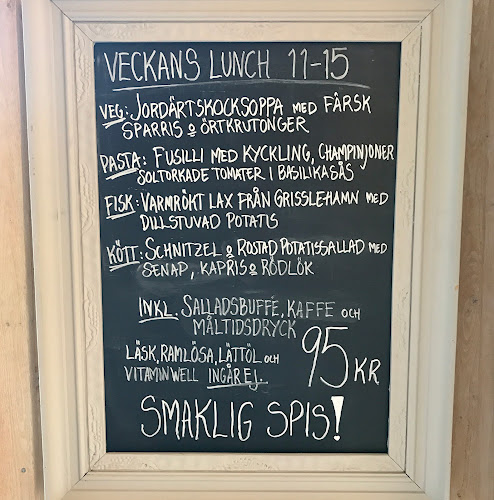 VECKANS LUNCH 11-15
VEG: JORDÄRTSKOCKSOPPA MED FÄRSK
SPARRIS O ÖRTKRUTONGER
PASTA: FUSILLI MED KYCKLING, CHAMPINJONER
SOLTORKADE TOMATER I BASILIKASÅS
FISK: VARMRÖKT LAX FRÅN GRISSLEHAMN MED
DILLSTUVAD POTATIS
KÖTT: SCHNITZEL O ROSTAD POTATISSALLAD MED
SENAP, KAPRIS O RÖDLÖK
INKL. SALLADSBUFFÉ, KAFFE OCH
MÅLTIDSDRYCK
LÄSK, RAMLÖSA, LÄTTÖL OCH
VITAMIN WELL INGÅR EJ.
95 KR
SMAKLIG SPIS!